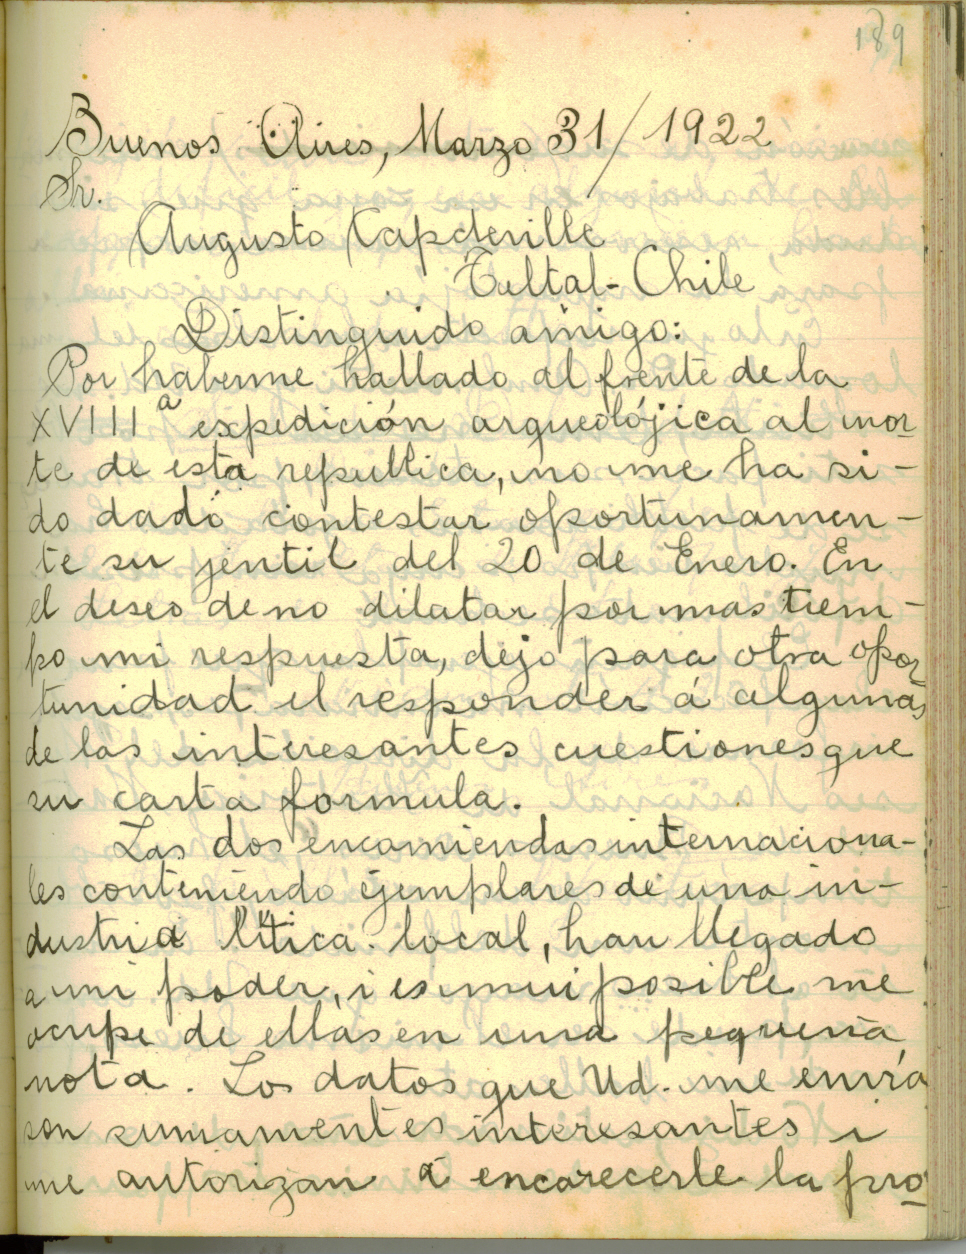 189
Buenos Aires, Marzo 31/1922
Sr.
Augusto Capdeville
Taltal - Chile
Distinguido amigo:
Por haberme hallado al frente de la
XVIIIª expedición arqueolójica al nor-
te de esta republica, no me ha si-
do dado contestar oportunamen-
te su jentil del 20 de Enero. En
el deseo de no dilatar por mas tiem-
po mi respuesta, dejo para otra opor-
tunidad el responder á algunas
de las interesantes cuestiones que
su carta formula.
Las dos encomiendas internaciona-
les conteniendo ejemplares de una in-
dustria lítica local, han llegado
a mi poder, i es mui posible me
ocupe de ellas en una pequeña
nota. Los datos que Ud. me envía
son sumamentes interesantes i
me autorizan á encarecerle la pro-